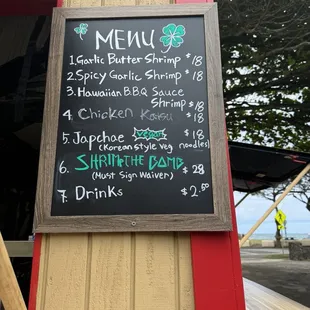 MENU
1. Garlic Butter Shrimp $18
2. Spicy Garlic Shrimp $18
3. Hawaiian B.B.Q Sauce
Shrimp $18
4. Chicken Katsu $18
5. Japchae $18
(Korean Style Veg noodles)
6. SHRIMP THE BOMB $28
(Must Sign Waiver)
7. Drinks $2.00